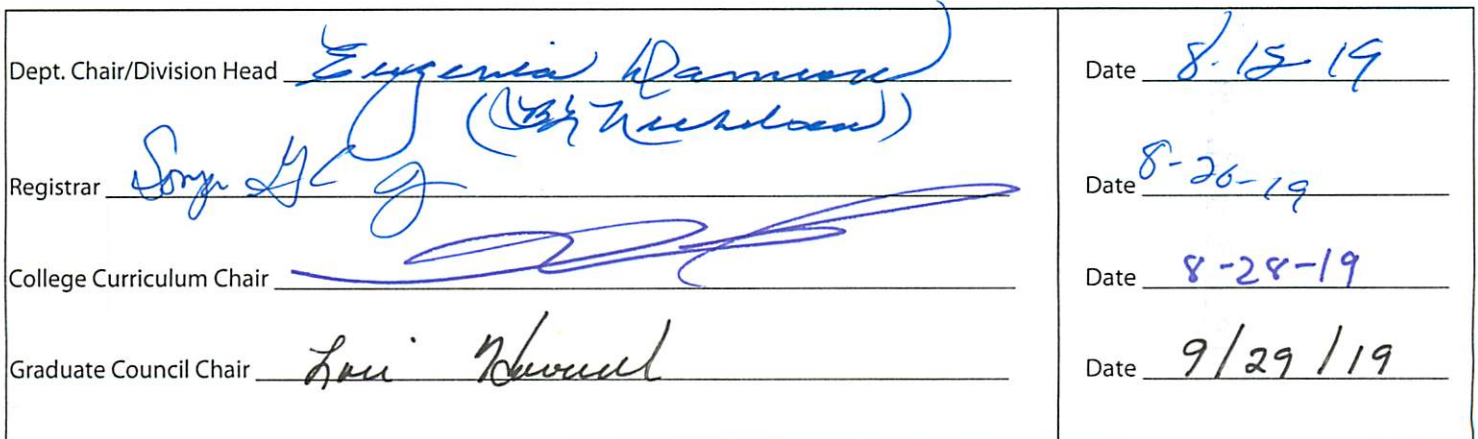 Dept. Chair/Division Head Eugenia Damron Date 8.15.19
(By Nicholson)
Registrar Date 8-26-19
College Curriculum Chair Date 8-28-19
Graduate Council Chair Lori Howard Date 9/29/19